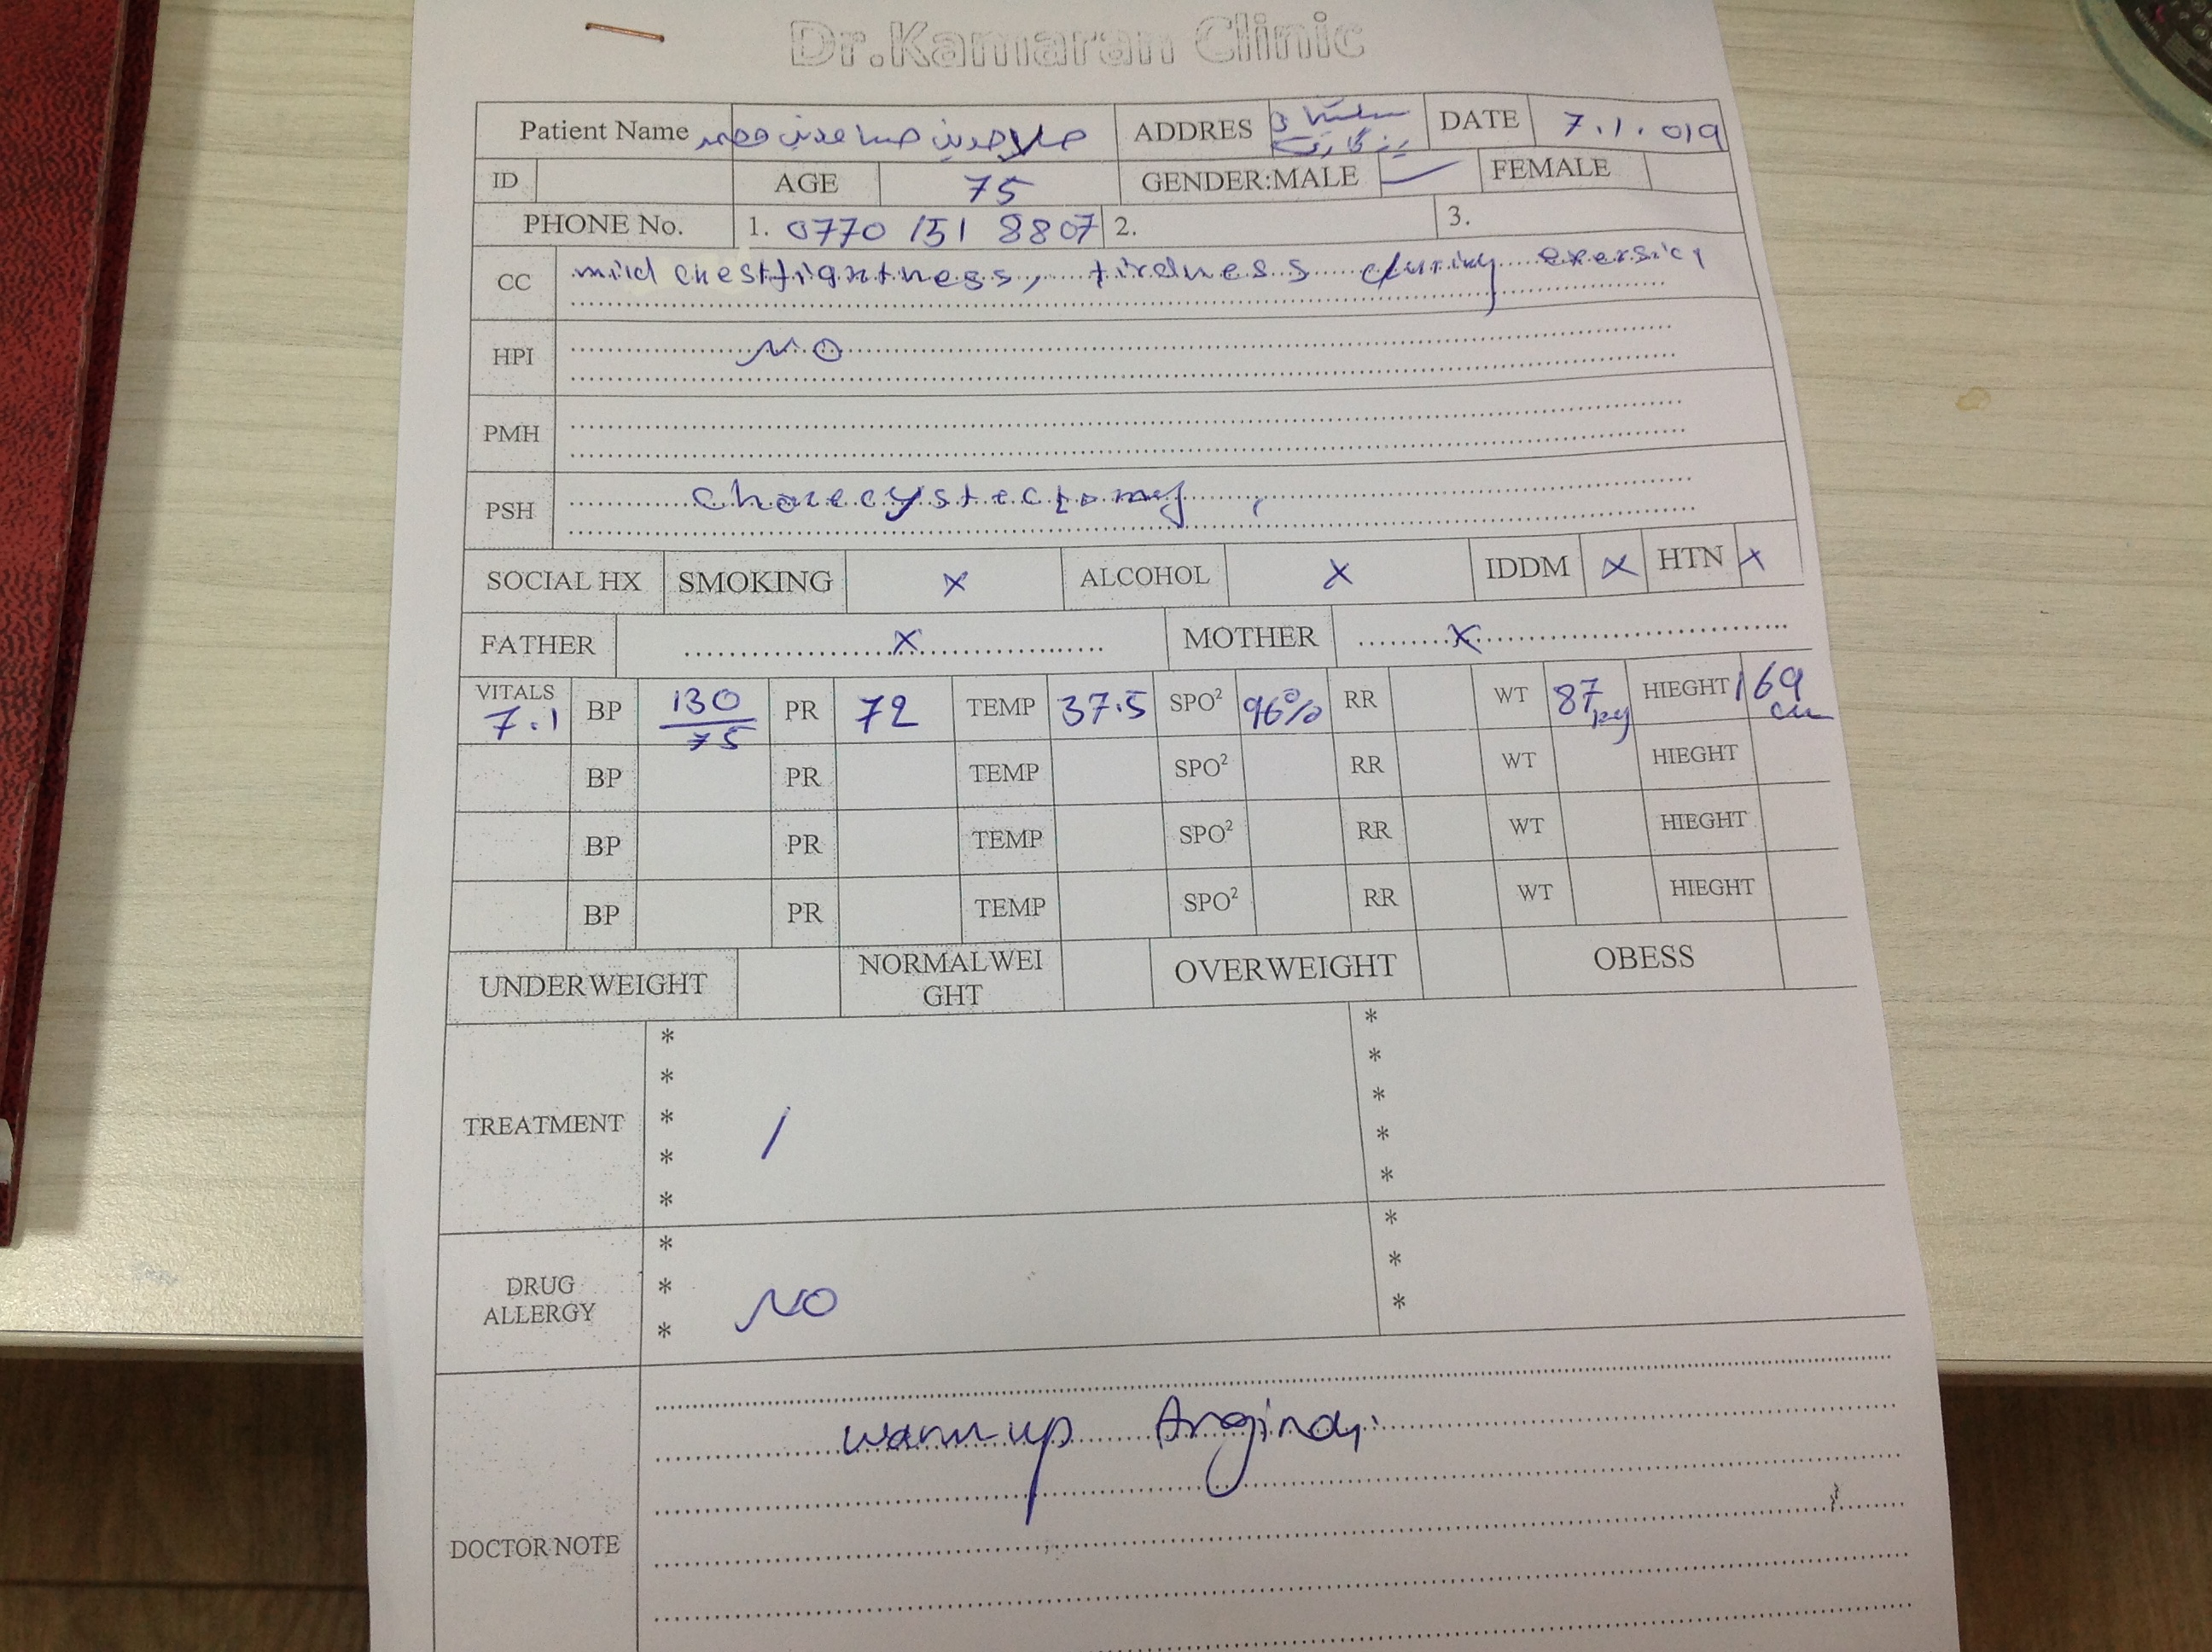 Dr.Kamaran Clinic
Patient Name صلاحدین ADDRES سلێمانی DATE 7.1.019
ڕزگاری
ID AGE 75 GENDER:MALE ✓ FEMALE
PHONE No. 1. 0770 151 8807 2. 3.
CC mild chesttightness, tirdness during exersicy
HPI NO
PMH
PSH cholecystectomy,
SOCIAL HX SMOKING x ALCOHOL x IDDM x HTN x
FATHER x MOTHER x
VITALS 7.1 BP 130/75 PR 72 TEMP 37.5 SPO² 96% RR WT 87 kg HIEGHT 169 cm
BP PR TEMP SPO² RR WT HIEGHT
BP PR TEMP SPO² RR WT HIEGHT
BP PR TEMP SPO² RR WT HIEGHT
UNDERWEIGHT NORMALWEI OVERWEIGHT OBESS
GHT
* *
* *
TREATMENT * / *
* *
* *
* *
DRUG * *
ALLERGY * NO *
*
warm up Angina,
DOCTOR NOTE